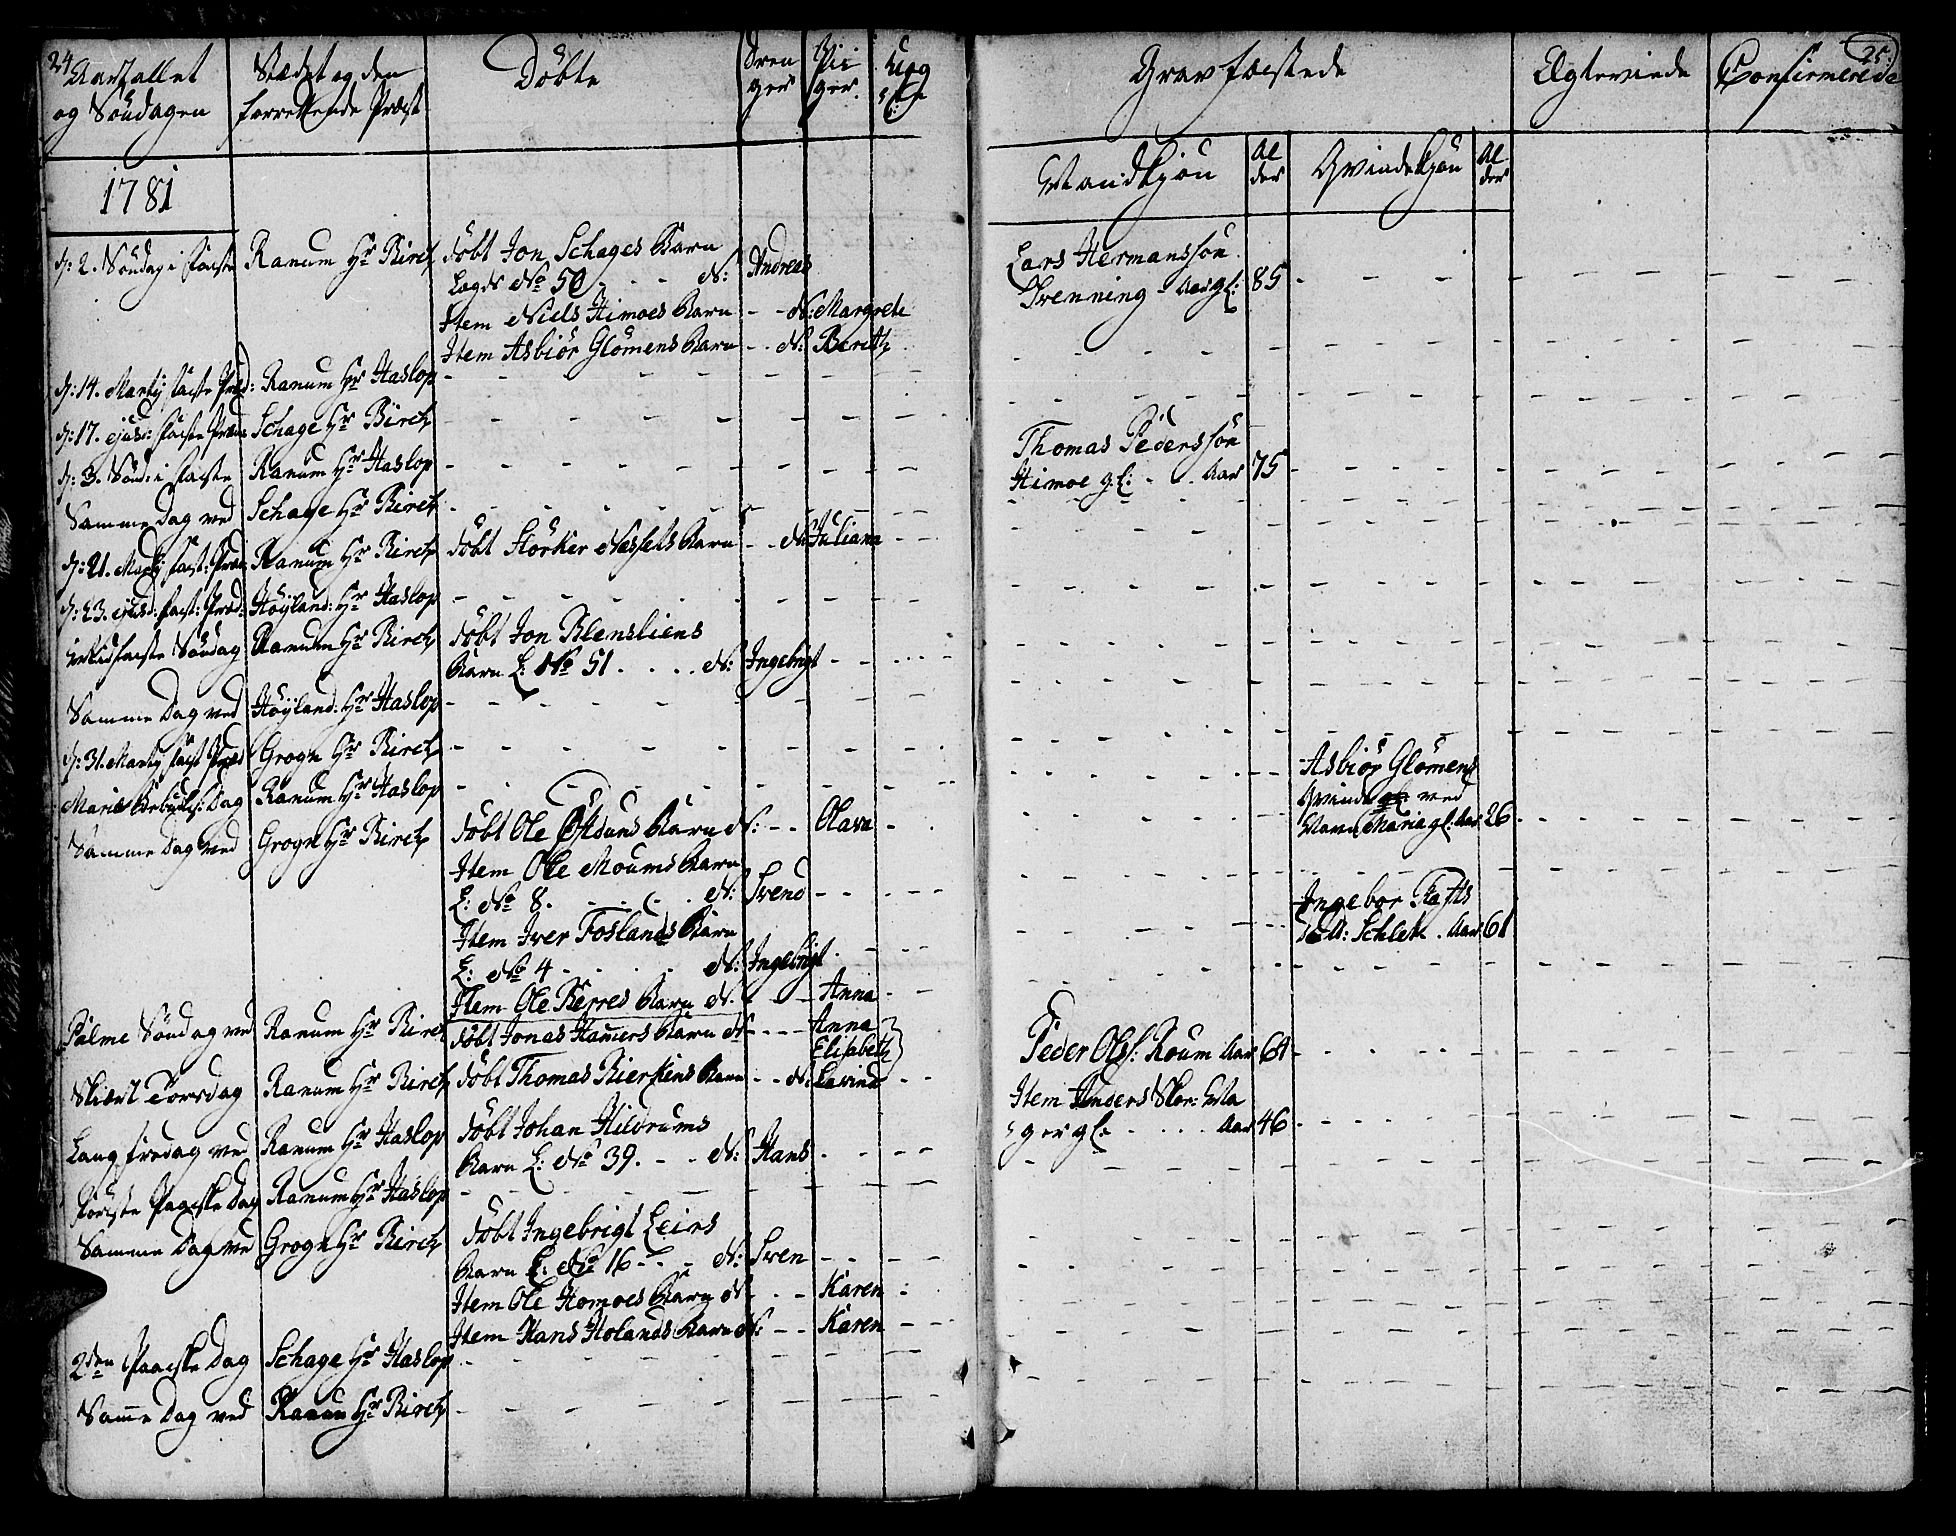 24
Aartallet
og Söndagen
Stædet og den
forrettende Præst
Döbte
Dren
ger
Pii
ger
Uæg
te
1781
d: 2. Söndag i Faste
Ranum Hr Birch
döbt Jon Schages Barn
Lægds No 50 - - - N:
Andreas
Item Niels Himoes Barn - - N: Margrete
Item Asbiör Glömens Barn - - N: Bereth
d: 14. Marty faste Præd: Ranum Hr Haslop
d: 17. ejusd: faste Præd: Schage Hr Birch
d: 3. Sönd: i faste Ranum Hr Haslop
Samme Dag ved Schage Hr Birch
d: 21. Marty fast: Præd: Ranum Hr Birch döbt Störker Næssets Barn - - N: Juliana
d: 23. ejusd: fast: Præd: Höyland: Hr Haslop
Midfaste Söndag Ranum Hr Birch döbt Jon Blensliens
Barn L: No 51 . . . . N: Ingebrigt
Samme Dag ved Höyland: Hr Haslop
d: 31. Marty fast Præd Grogn Hr Birch
Mariæ Bebud: Dag Ranum Hr Haslop
Samme Dag ved Grogn Hr Birch döbt Ole Östduns Barn N: - - Olava
Item Ole Moums Barn
L: No 8. - - - - N: Svend
Item Iver Foslands Barn
L: No 4 - - - - N: Ingebrigt
Item Ole Berres Barn N: - - Anna
Palme Söndag ved Ranum Hr Birch döbt Jonas Hamers Barn N - - - Anna
Elisabeth
Skiært Torsdag Ranum Hr Birch döbt Thomas Bierkens Barn - - N: Lavina
Langfredag ved Ranum Hr Haslop döbt Johan Hildrums
Barn L: No 39. - - N: Hans
förste Paaske Dag Ranum Hr Haslop
Samme Dag ved Grogn Hr Birch döbt Ingebrigt Leirs
Barn L: No 16 - - - N: Sven
Item Ole Homoes Barn N - - - Karen
Item Hans Holands Barn N: - - Karen
2den Paaske Dag Schage Hr Haslop
Samme Dag ved Ranum Hr Birch
25:
Gravfæstede
Ægteviede
Confirmerede
Mandkjön
Al
der
Qvindekjön
Al
der
Lars Hermanssön
Svenning - Aar gl: 85
Thomas Pederssön
Himoe gl: - . . Aar 75
Asbiör Glömens
Qvinde ved
Navn Maria gl: Aar 26
Ingebor Tofts
Schlett . Aar 61
Peder Olss: Roum Aar 61
Item Anders Skor: Ma
ger gl: . . . . Aar 46